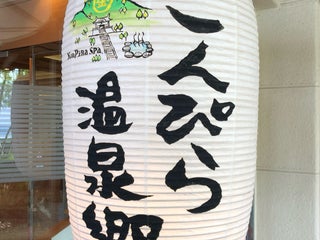 こんぴら
温泉郷
KOMPIRA SPA